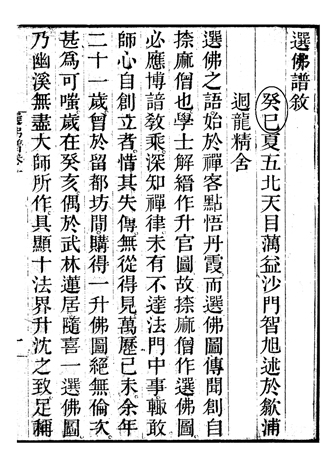 選佛譜敘
癸巳夏五北天目蕅益沙門智旭述於歙浦
迴龍精舍
選佛之語始於禪客點悟丹霞而選佛圖傳聞創自
捺麻僧也學士解縉作升官圖故捺麻僧作選佛圖
必應博諳教乘深知禪律未有不達法門中事輙敢
師心自創立者惜其失傳無從得見萬歷己未余年
二十一歲曾於留都坊間購得一升佛圖絕無倫次
甚為可嗤歲在癸亥偶於武林蓮居隨喜一選佛圖
乃幽溪無盡大師所作具顯十法界升沈之致足稱
選佛譜卷一